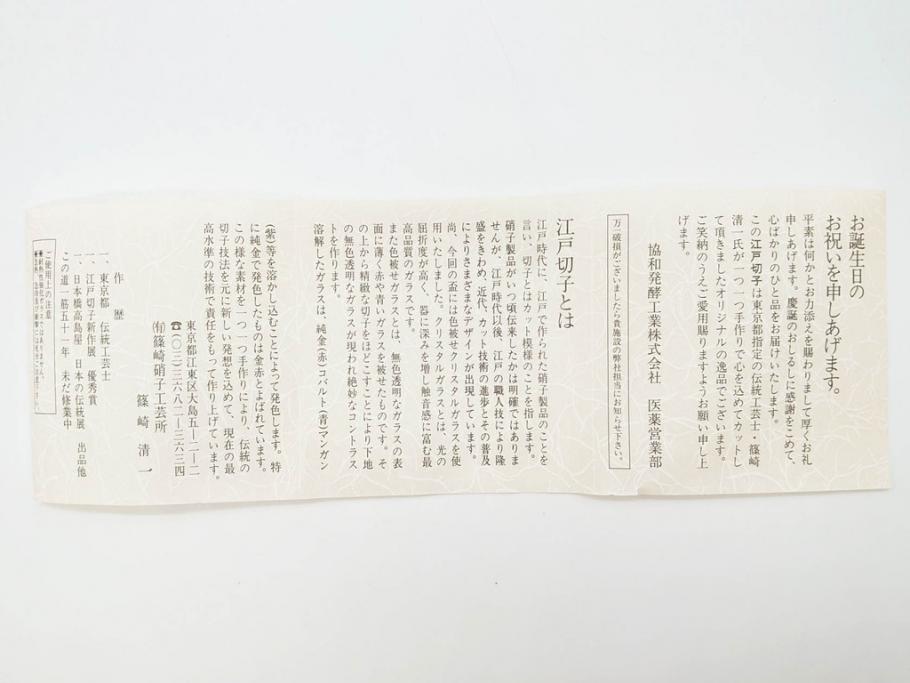 お誕生日の
お祝いを申しあげます。
平素は何かとお力添えを賜わりまして厚くお礼
申しあげます。慶誕のおしるしに感謝をこめて、
心ばかりのひと品をお届けいたします。
この江戸切子は東京都指定の伝統工芸士・篠崎
清一氏が一つ一つ手作りで心を込めてカットし
て頂きましたオリジナルの逸品でございます。
ご笑納のうえご愛用賜りますようお願い申し上
げます。
協和発酵工業株式会社　医薬営業部
万一破損がございましたら貴施設の弊社担当にお知らせ下さい。
江戸切子とは
江戸時代に、江戸で作られた硝子製品のことを
言い、切子とはカット模様のことを指します。
硝子製品がいつ頃伝来したかは明確ではありま
せんが、江戸時代以後、江戸の職人技により隆
盛をきわめ、近代、カット技術の進歩とその普及
によりさまざまなデザインが出現しています。
尚、今回の盃には色被せクリスタルガラスを使
用いたしました。クリスタルガラスとは、光の
屈折度が高く、器に深みを増し触音感に富む最
高品質のガラスです。
また色被せガラスとは、無色透明なガラスの表
面に薄く赤や青いガラスを被せたものです。そ
の上から精緻な切子をほどこすことにより下地
の無色透明なガラスが現われ絶妙なコントラス
トを作ります。
溶解したガラスは、純金(赤)コバルト(青)マンガン
(紫)等を溶かし込むことによって発色します。特
に純金で発色したものは金赤とよばれています。
この様な素材を一つ一つ手作りにより、伝統の
切子技法を元に新しい発想を込めて、現在の最
高水準の技術で責任をもって作り上げています。
東京都江東区大島五ー二ー二
☎(〇三)三六八二ー三六三四
㈲篠崎硝子工芸所
篠崎清一
作　歴
一、東京都　伝統工芸士
一、江戸切子新作展　優秀賞
一、日本橋高島屋　日本の伝統展　出品他
この道一筋五十一年　未だ修業中
ご使用上の注意